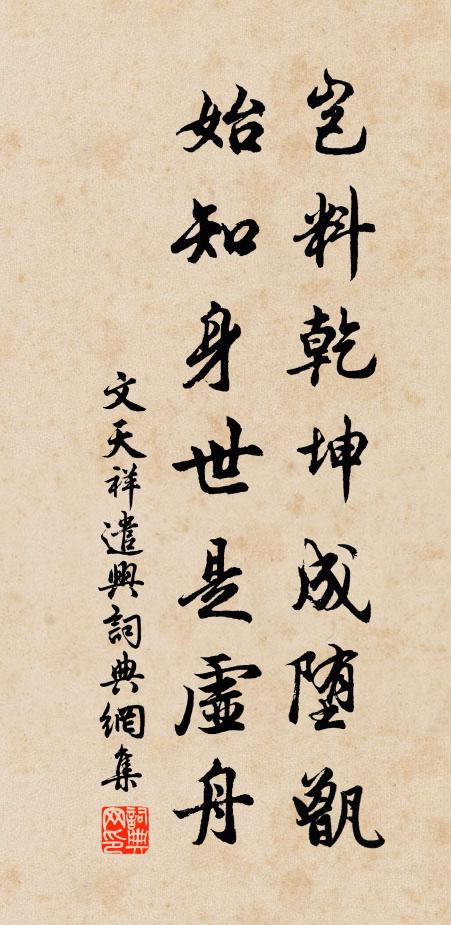 豈料乾坤成墮甑
始知身世是虛舟
文天祥遣興詞典網集
詞典網印